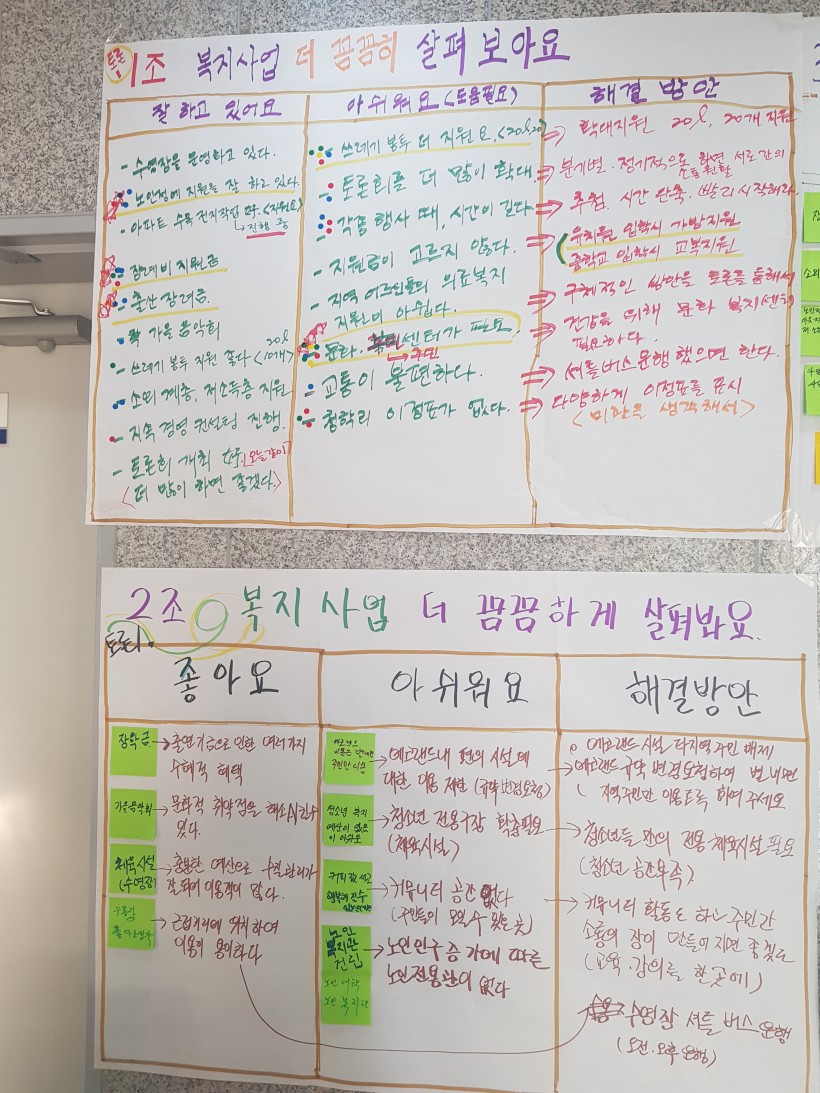 토론1
1조 복지사업 더 꼼꼼히 살펴보아요
잘 하고 있어요
- 수영장을 운영하고 있다.
- 노인정에 지원을 잘 하고 있다.
- 아파트 수목 전지작업 <지원요>
↳ 진행 중
- 장례비 지원금
- 출산 장려금.
가을 음악회
- 쓰레기 봉투 지원 좋다 <10개> 20l
- 소외 계층, 저소득층 지원
- 지속 경영 컨설팅 진행.
- 토론회 개최 (오늘같이)
<더 많이 하면 좋겠다.>
아쉬워요 <도움필요>
쓰레기 봉투 더 지원 요. <20l 20>
- 토론회를 더 많이 확대.
각종 행사 때, 시간이 길다
- 지원금이 고르지 않다.
- 지역 어르신들의 의료복지
지원이 아쉽다.
문화. 센터가 필요.
→ 주민
교통이 불편하다.
철학리 이정표가 없다.
해결 방안
⇒ 확대지원 20l, 20개 지원
⇒ 분기별. 정기적으로 하면 서로간의
소통 원활
⇒ 추첨 시간 단축. 빨리 시작해라
⇒ 유치원 입학시 가방지원
중학교 입학시 교복지원
⇒ 구체적인 방안을 토론을 통해서
⇒ 건강을 위해 문화 복지센터
필요하다.
⇒ 셔틀버스 운행 했으면 한다.
⇒ 다양하게 이정표를 표시
<미관을 생각해서>
2조 복지사업 더 꼼꼼하게 살펴봐요.
토론1.
좋아요
장학금 → 출연기금으로 인한 여러가지
수혜적 혜택
가을음악회 → 문화적 취약점을 해소시킬수
있다.
체육시설 (수영장) → 충분한 예산으로 수질관리가
잘 되어 이용객이 많다.
수영장 → 근접거리에 위치하여
이용이 용이하다
아쉬워요
주민만 이용
→ 에코랜드내 편의 시설에
대한 이용 제한 (규약 변경요청)
청소년 복지
예산이 없음
이 아쉬움
→ 청소년 전용구장 확충필요
(체육시설)
→ 커뮤니티 공간 없다
(주민들이 모일 수 있는 곳)
노인
복지관
건립
노인 대학
노인 복지관
→ 노인인구 증가에 따른
노인전용관이 없다
해결방안
○ 에코랜드 시설 타지역 주민 배제
→ 에코랜드 규약 변경요청하여 별내면
지역주민만 이용토록 하여 주세요
→ 청소년들 만의 전용 체육시설 필요
(청소년 공간부족)
→ 커뮤니티 활동도 하고 주민간
소통의 장이 만들어지면 좋겠고
(교육.강의를 한곳에)
수영장 셔틀 버스 운행
(오전.오후 운행)